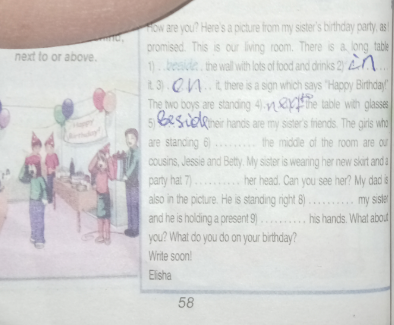 next to or above.
Happy
Birthday!
How are you? Here's a picture from my sister's birthday party, as
promised. This is our living room. There is a long table
1) beside, the wall with lots of food and drinks 2) in
it. 3) on .. it, there is a sign which says "Happy Birthday!"
The two boys are standing 4) next to the table with glasses
5) Beside their hands are my sister's friends. The girls who
are standing 6) .......... the middle of the room are our
cousins, Jessie and Betty. My sister is wearing her new skirt and a
party hat 7) .......... her head. Can you see her? My dad is
also in the picture. He is standing right 8) .......... my sister
and he is holding a present 9) .......... his hands. What about
you? What do you do on your birthday?
Write soon!
Elisha
58